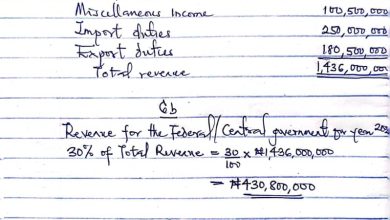 Miscellaneous Income 100,500,000
Import duties 250,000,000
Export duties 180,500,000
Total revenue 1,436,000,000
6b
Revenue for the Federal/Central government for year
30% of Total Revenue = 30/100 x ₦1436,000,000
= ₦430,800,000